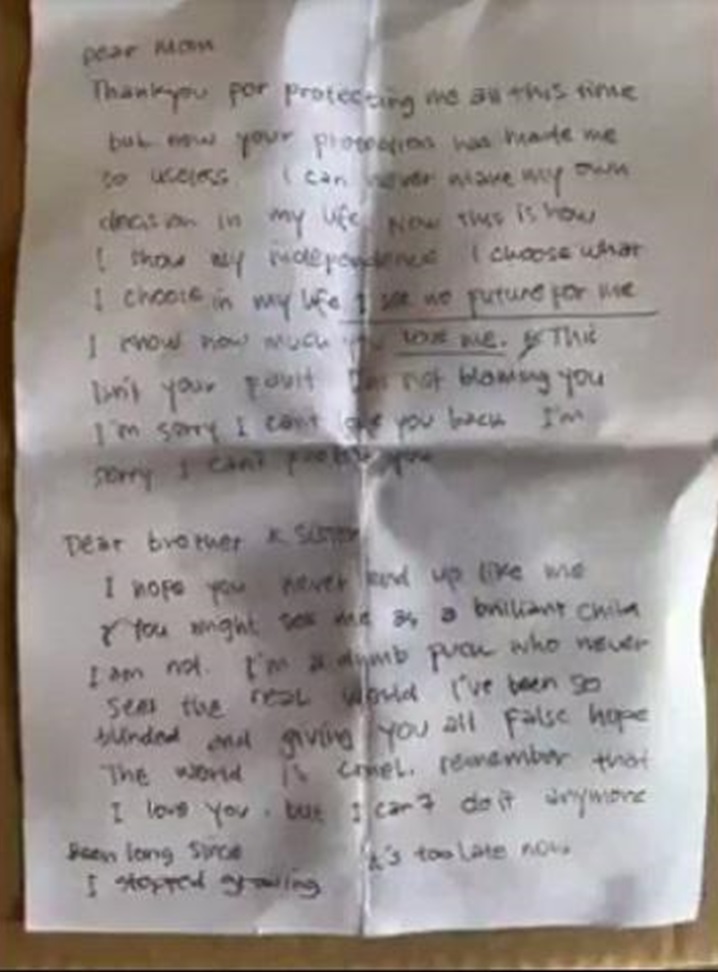 Dear Mom
Thankyou for protecting me all this time
but now your protection has made me
so useless. I can never make my own
decision in my life. Now this is how
I show my independence I choose what
I choose in my life I see no future for me
I know how much you love me. This
Isn't your fault I'm not blaming you
I'm sorry I cant love you back I'm
sorry I can't protect you
Dear brother & Sister
I hope you never end up like me
You might see me as a brilliant child
I am not. I'm a dumb fuck who never
sees the real world I've been so
blinded and giving you all false hope
The world is cruel. remember that
I love you. but I can't do it anymore
Been long since
I stopped growing
it's too late now.